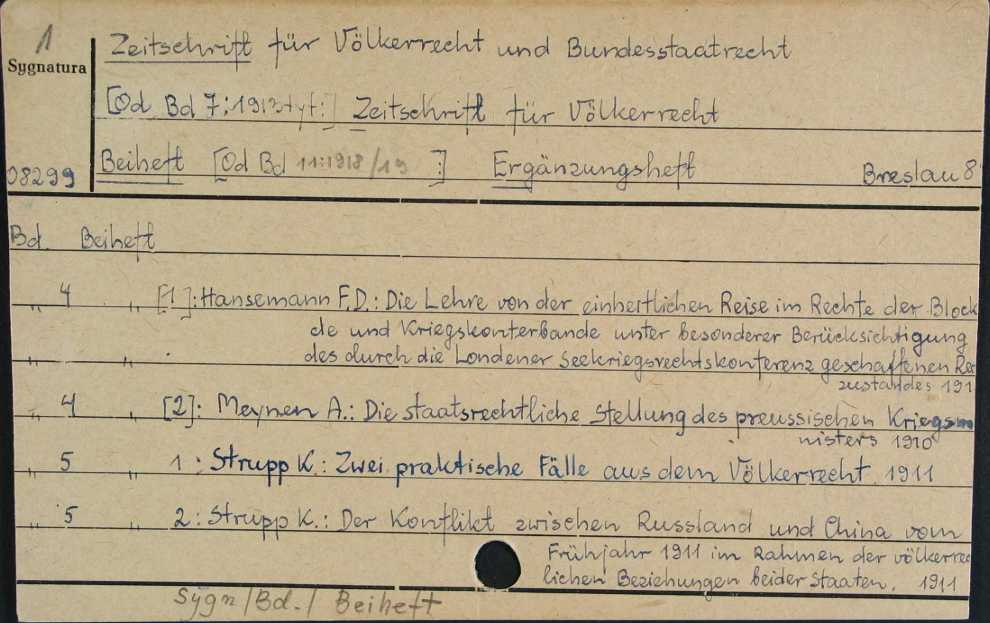 1
Zeitschrift für Völkerrecht und Bundesstaatrecht
Sygnatura
[Od Bd 7:1913 tyt:] Zeitschrift für Völkerrecht
Beiheft [Od Bd 11:1918/19 :] Ergänzungsheft Breslau 8
08299
Bd. Beiheft
" 4 " [1]: Hansemann F.D.: Die Lehre von der einheitlichen Reise im Rechte der Block
de und Kriegskonterbande unter besonderer Berücksichtigung
" " . des durch die Londener Seekriegsrechtskonferenz geschaffenen Rec
zustandes 191
" 4 " [2]: Meynen A.: Die staatsrechtliche Stellung des preussischen Kriegsm
nisters 1910
" 5 " 1: Strupp K.: Zwei praktische Fälle aus dem Völkerrecht. 1911
" 5 " 2: Strupp K.: Der Konflikt zwischen Russland und China vom
Frühjahr 1911 im Rahmen der völkerrec
lichen Beziehungen beider Staaten. 1911
Sygn/Bd./ Beiheft